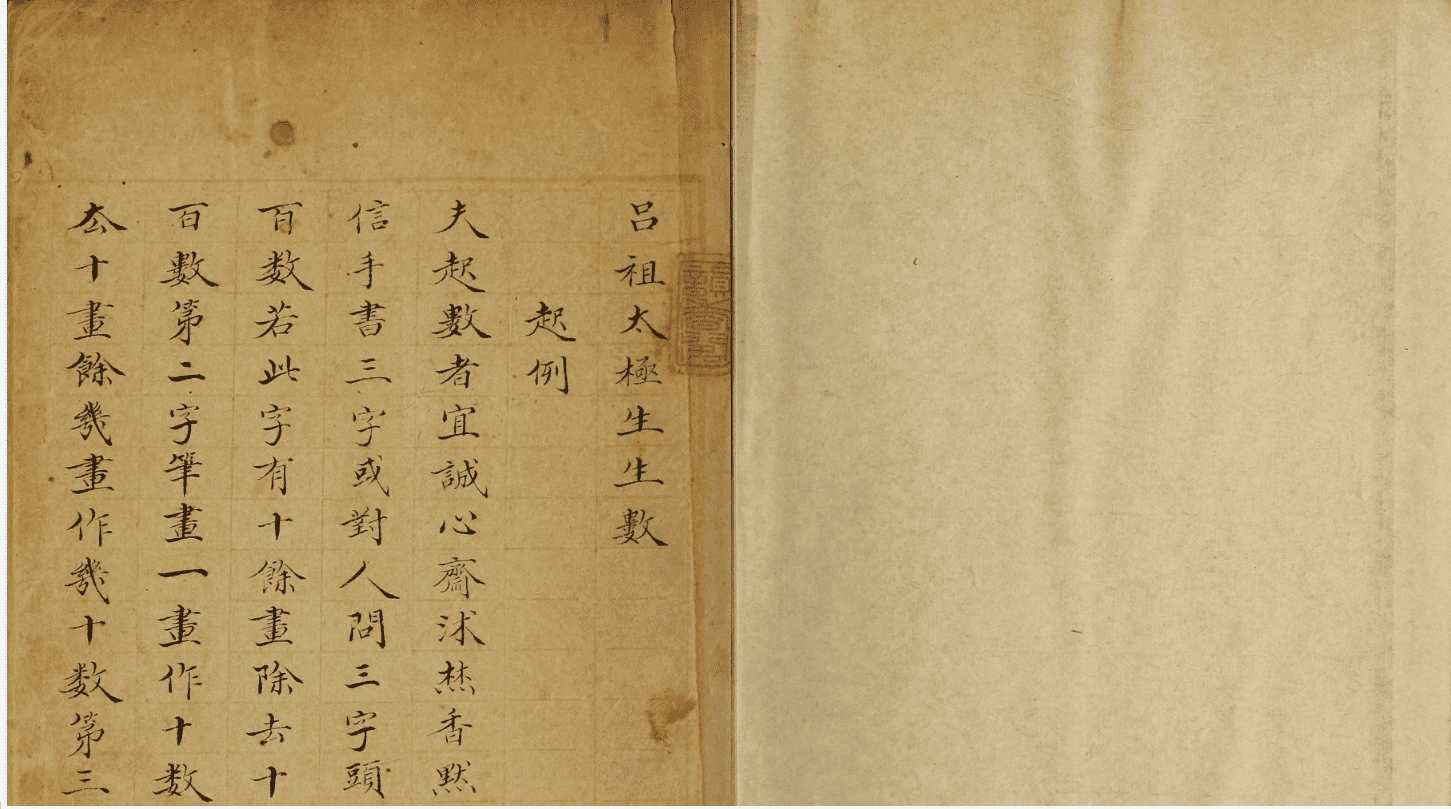 呂祖太極生生數
起例
夫起數者宜誠心齋沭焚香默
信手書三字或對人問三字頭
百数若此字有十餘畫除去十
百數第二字筆畫一畫作十数
厺十畫餘幾畫作幾十数第三